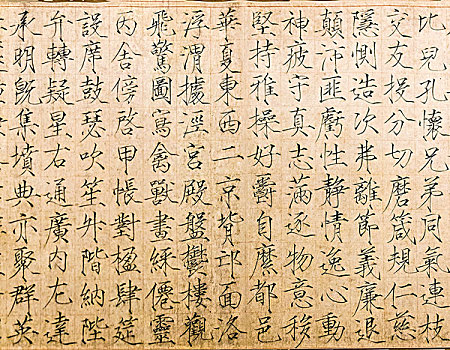 比兒孔懷兄弟同氣連枝
交友投分切磨箴規仁慈
隱惻造次弗離節義廉退
顛沛匪虧性靜情逸心動
神疲守真志滿逐物意移
堅持雅操好爵自縻都邑
華夏東西二京背邙面洛
浮渭據涇宮殿盤鬱樓觀
飛驚圖寫禽獸畫綵僊靈
丙舍傍啓甲帳對楹肆筵
設席鼓瑟吹笙升階納陛
弁轉疑星右通廣內左達
承明既集墳典亦聚群英